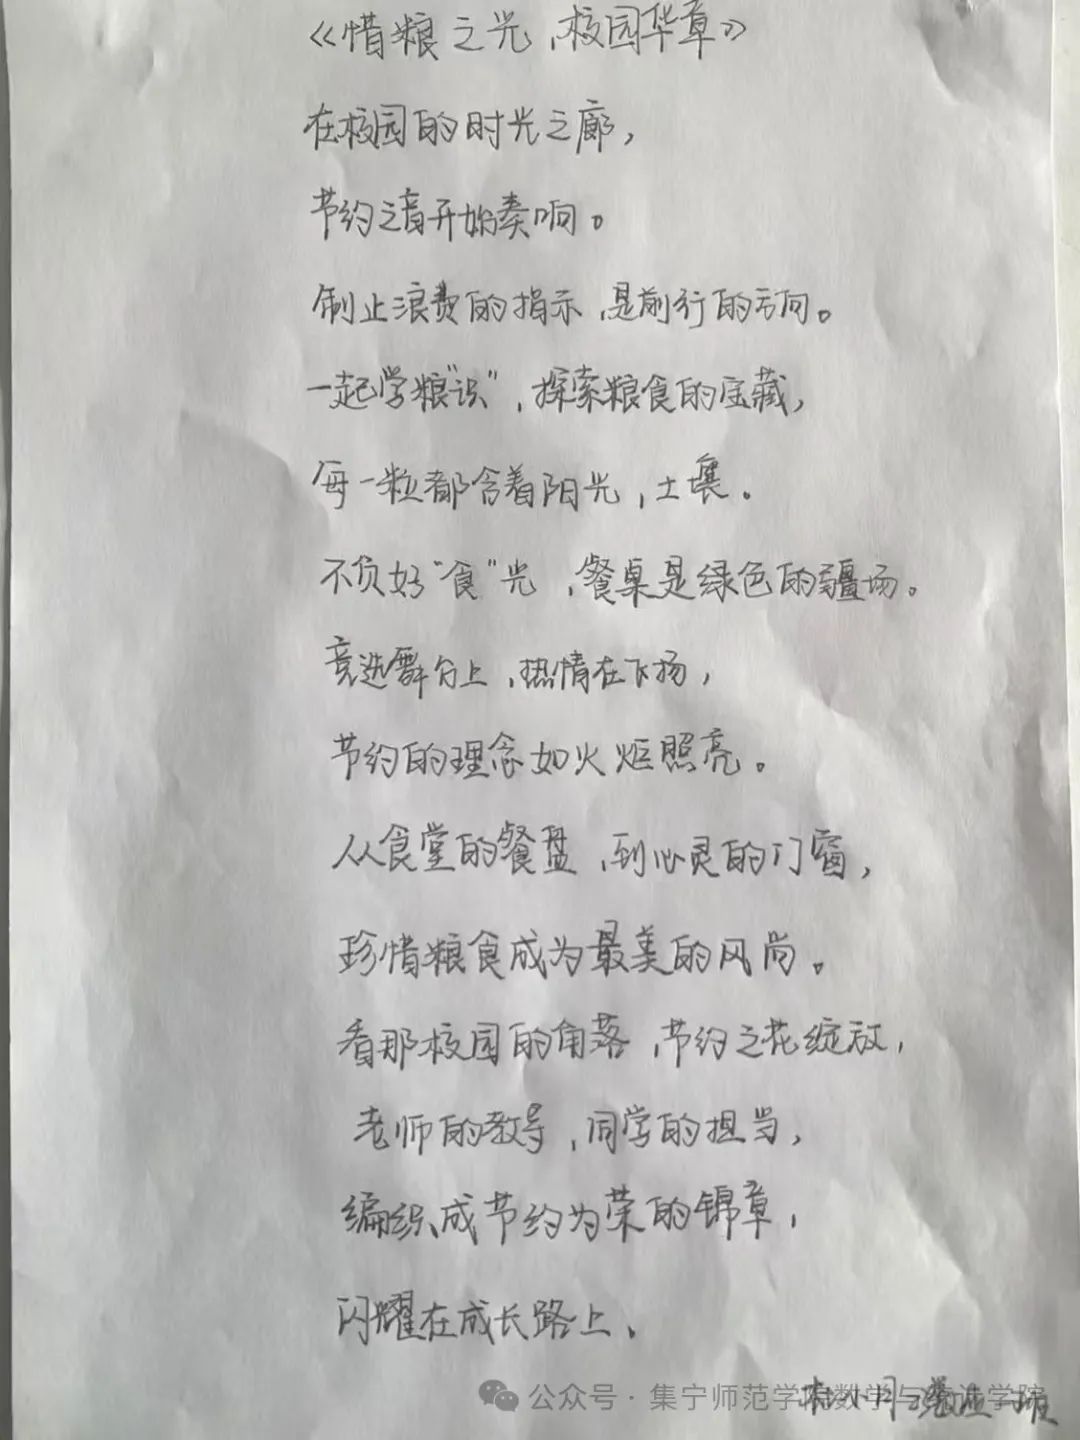 《惜粮之光,校园华章》
在校园的时光之廊,
节约之音开始奏响。
制止浪费的指示,是前行的方向。
一起学粮“识”,探索粮食的宝藏,
每一粒都含着阳光,土壤.
不负好“食”光,餐桌是绿色的疆场。
竞选舞台上,热情在飞扬,
节约的理念如火炬照亮。
从食堂的餐盘,到心灵的门窗,
珍惜粮食成为最美的风尚。
看那校园的角落,节约之花绽放,
老师的教导,同学的担当,
编织成节约为荣的锦章,
闪耀在成长路上、
公众号·集宁师范学 数学与 学院